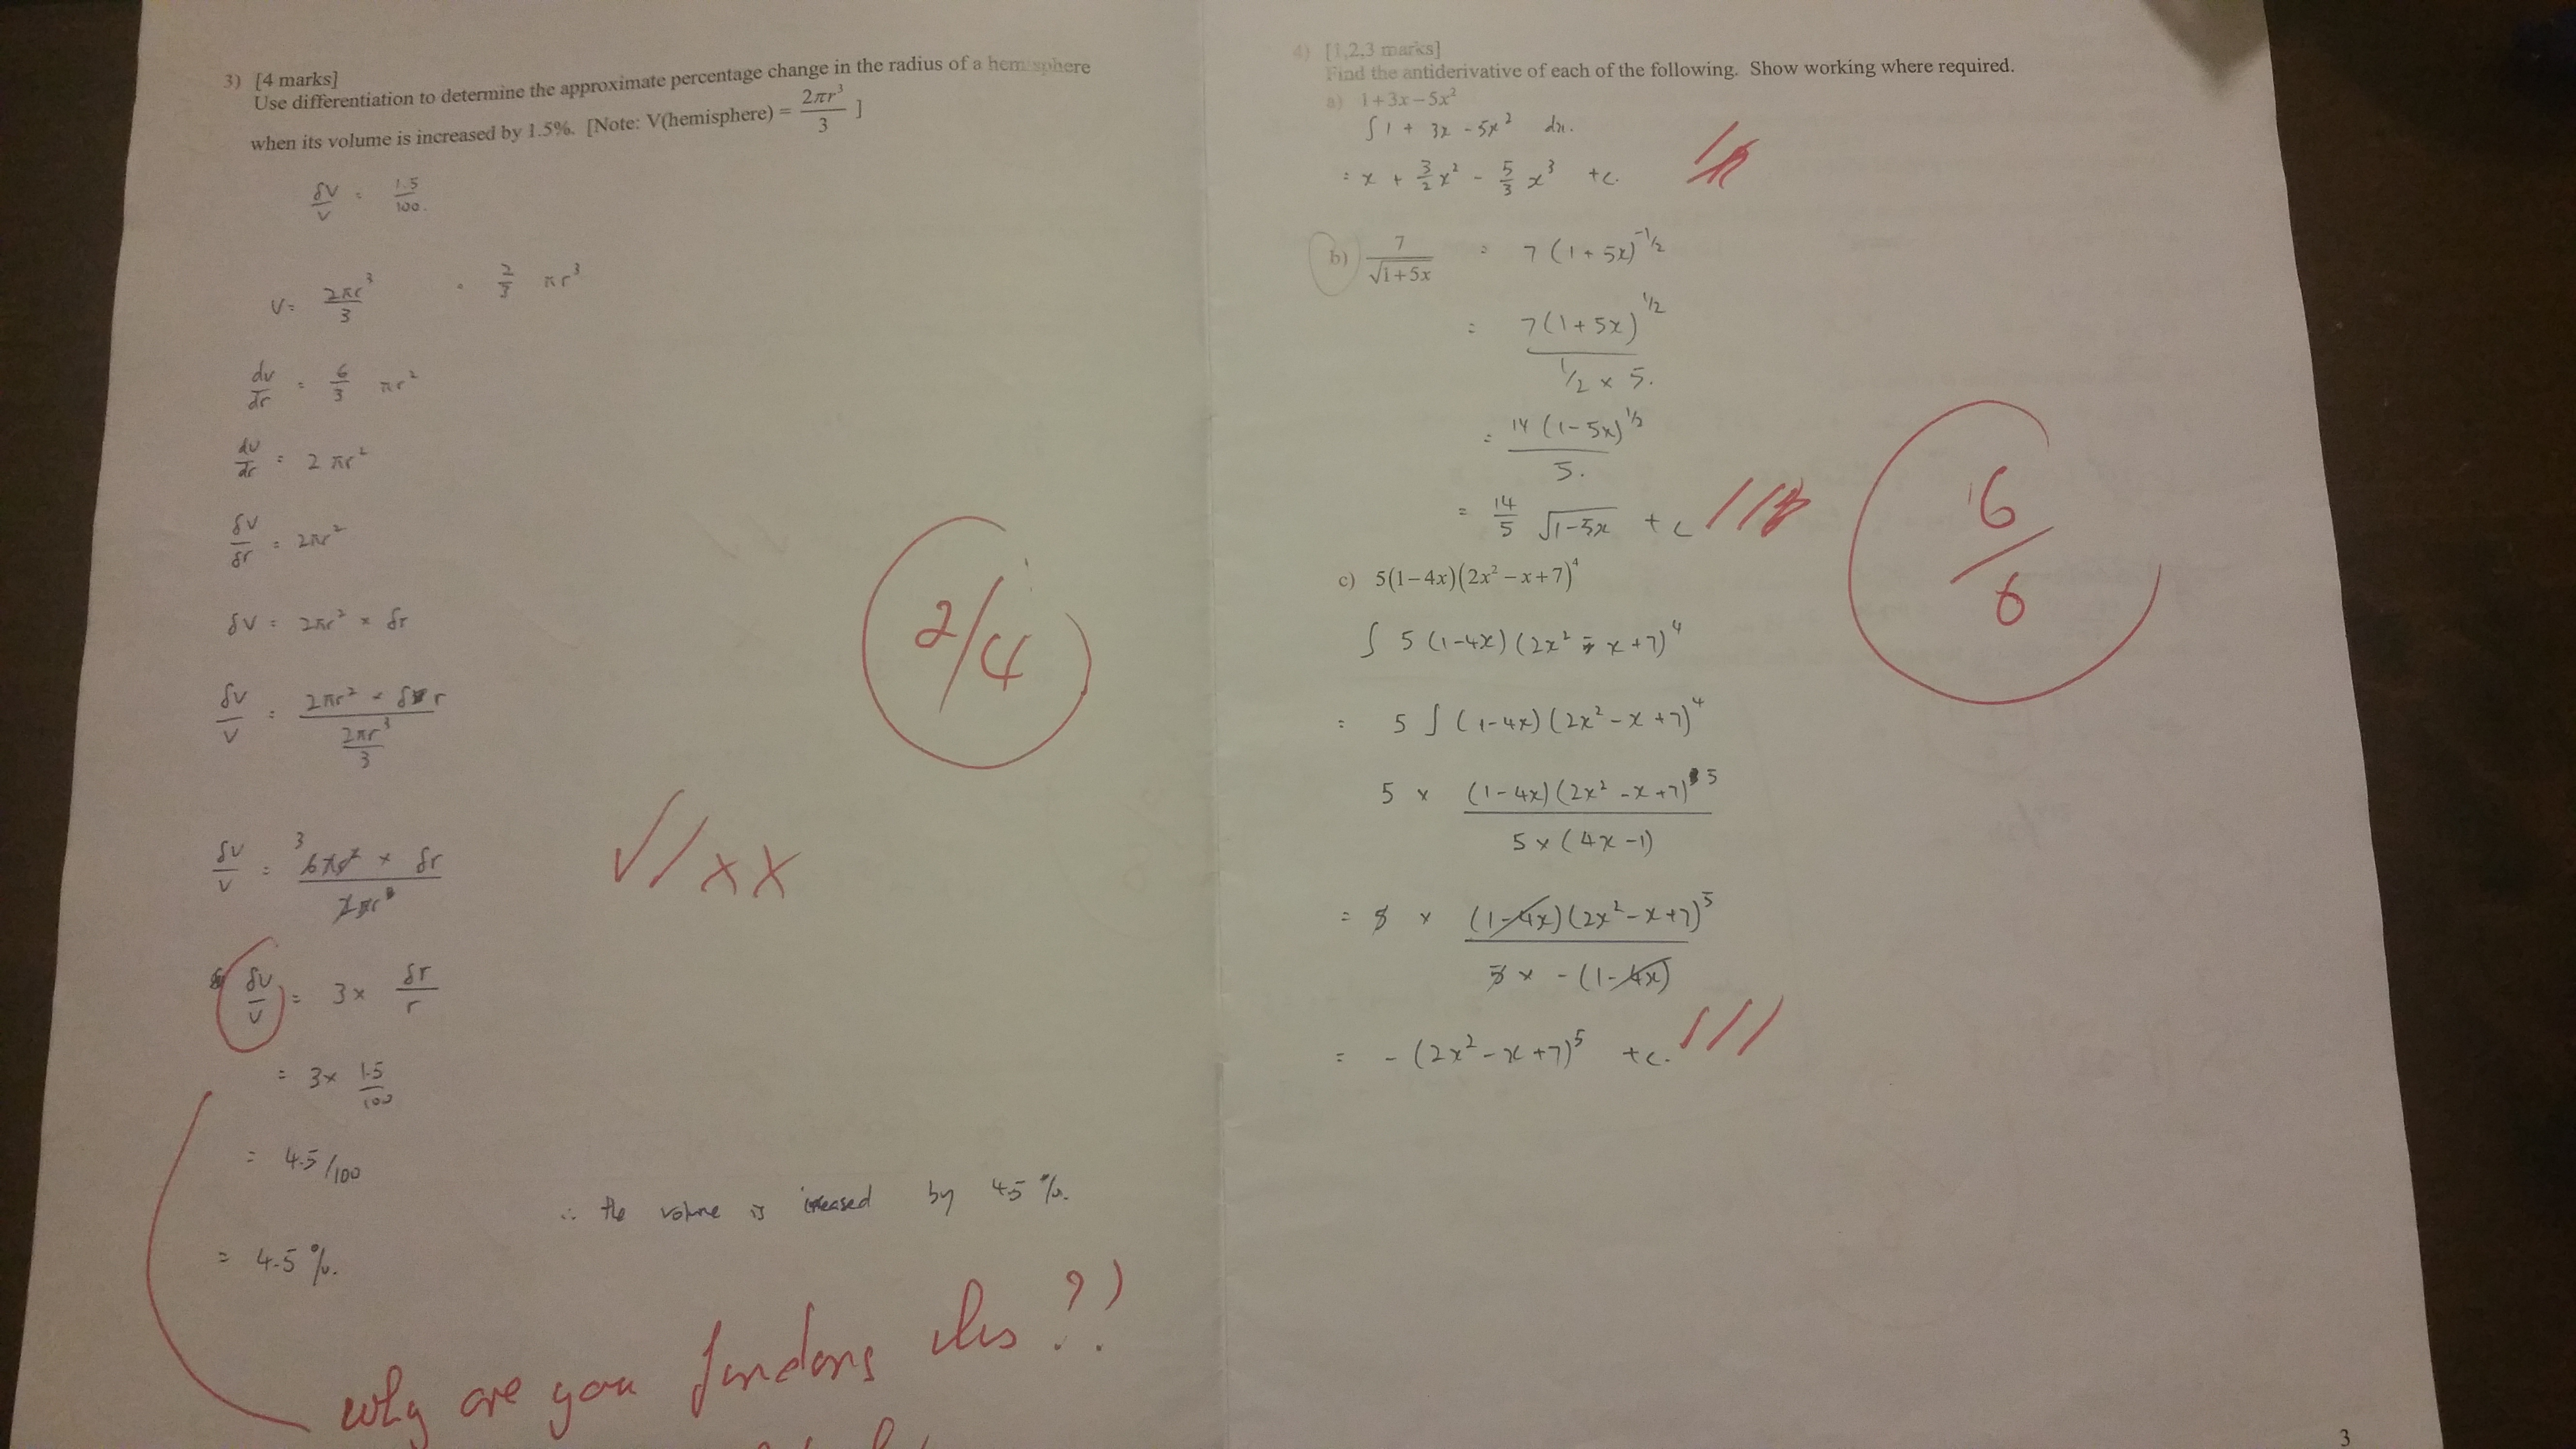 3) [4 marks]
Use differentiation to determine the approximate percentage change in the radius of a hemisphere
when its volume is increased by 1.5%. [Note: V(hemisphere) = 2πr³/3 ]
δV/V = 1.5/100.
V = 2πr³/3 = 2/3 πr³
dv/dr = 6/3 πr²
dv/dr = 2πr²
δV/δr = 2πr²
δV = 2πr² × δr
δV/V = (2πr² × δr)/(2πr³/3)
δV/V = 3 6πr² × δr / 2πr³
δV/V = 3 × δr/r
= 3 × 1.5/100
= 4.5/100
∴ the volume is increased by 4.5 %.
= 4.5 %.
√/xx
2/4
why are you finding this??
4) [1,2,3 marks]
Find the antiderivative of each of the following. Show working where required.
a) 1+3x−5x²
∫ 1 + 3x - 5x² dx.
= x + 3/2 x² - 5/3 x³ +c.
b) 7/√(1+5x) = 7 (1 + 5x)^-1/2
= 7(1 + 5x)^1/2 / (1/2 × 5.)
= 14 (1-5x)^1/2 / 5.
= 14/5 √(1-5x) + c
c) 5(1−4x)(2x²−x+7)⁴
∫ 5 (1-4x) (2x² - x +7)⁴
= 5 ∫ (1-4x) (2x² - x +7)⁴
5 × (1-4x)(2x² - x +7)⁵ / 5 × (4x -1)
= 5 × (1-4x)(2x² - x +7)⁵ / 5 × -(1-4x)
= - (2x² - x +7)⁵ +c.
6/6
3